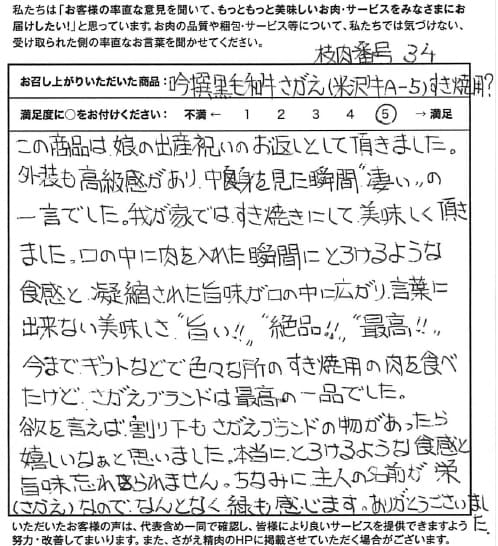 私たちは「お客様の率直な意見を聞いて、もっともっと美味しいお肉・サービスをみなさまにお
届けしたい!」と思っています。お肉の品質や梱包・サービス等について、私たちでは気づけない、
受け取られた側の率直なお言葉を聞かせてください。
枝肉番号 34
お召し上がりいただいた商品: 吟撰黒毛和牛さがえ(米沢牛A-5)すき焼用?
満足度に○をお付けください: 不満 ← 1 2 3 4 ⑤ → 満足
この商品は、娘の出産祝いのお返しとして頂きました。
外装も高級感があり、中身を見た瞬間“凄い”の
一言でした。我が家では、すき焼きにして、美味しく頂き
ました。口の中に肉を入れた瞬間にとろけるような
食感と、凝縮された旨味が口の中に広がり、言葉に
出来ない美味しさ“旨い!!”“絶品!!”“最高!!”
今まで、ギフトなどで色々な所のすき焼用の肉を食べ
たけど、さがえブランドは最高の一品でした。
欲を言えば、割り下もさがえブランドの物があったら
嬉しいなぁと思いました。本当に、とろけるような食感と
旨味忘れられません。ちなみに、主人の名前が栄
(さがえ)なので、なんとなく縁も感じます。ありがとうございまし
た。
いただいたお客様の声は、代表含め一同で確認し、皆様により良いサービスを提供できますよう
努力・改善してまいります。また、さがえ精肉のHPに掲載させていただく場合がございます。